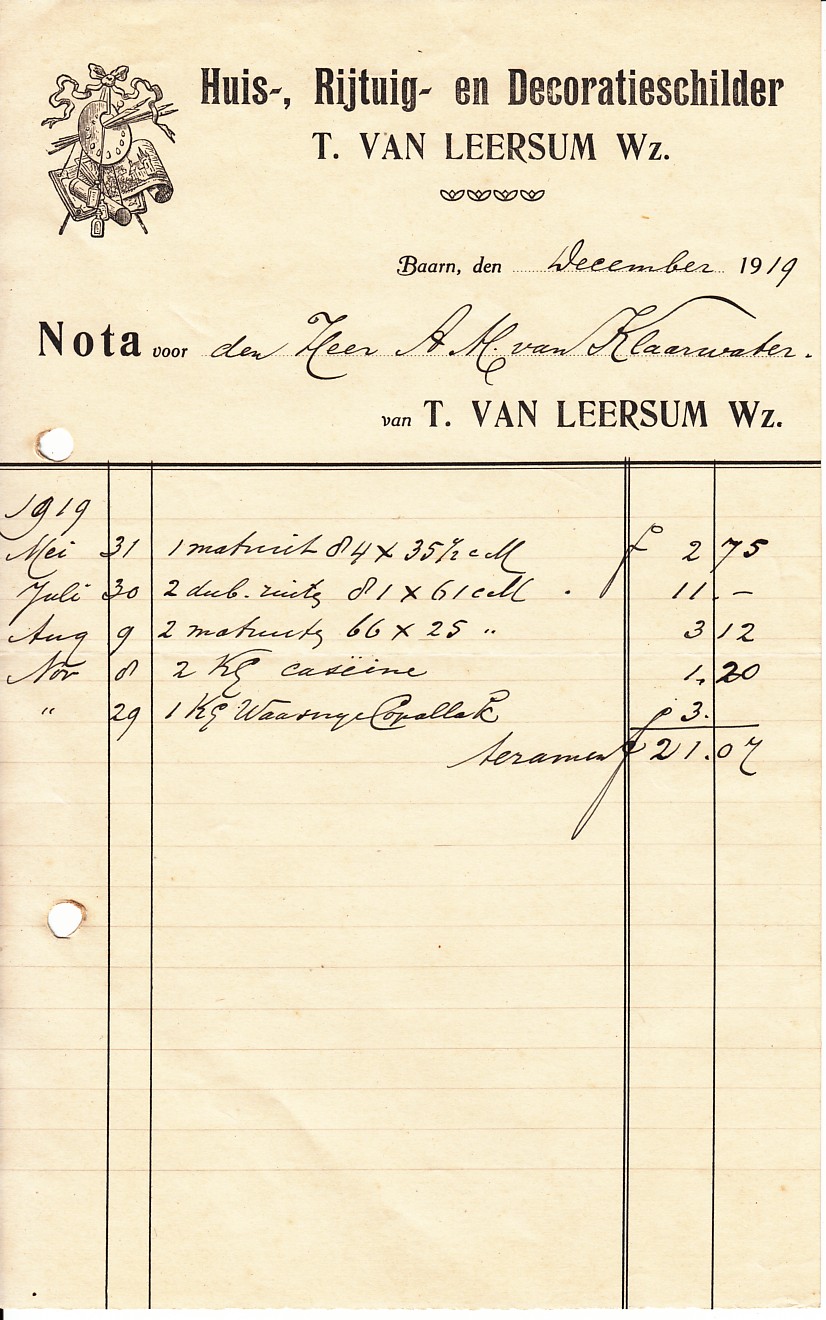 Huis-, Rijtuig- en Decoratieschilder
T. VAN LEERSUM Wz.
Baarn, den December 1919
Nota voor den Heer A M. van Klaarwater.
van T. VAN LEERSUM Wz.
1919
Mei 31 1 matruit 84 x 35 1/2 cM f 2 75
Juli 30 2 dub. ruiten 81 x 61 cM . 11. –
Aug 9 2 matruiten 66 x 25 " 3 12
Nov 8 2 KG caseïne 1. 20
" 29 1 KG Copallak f 3.
f 21. 07